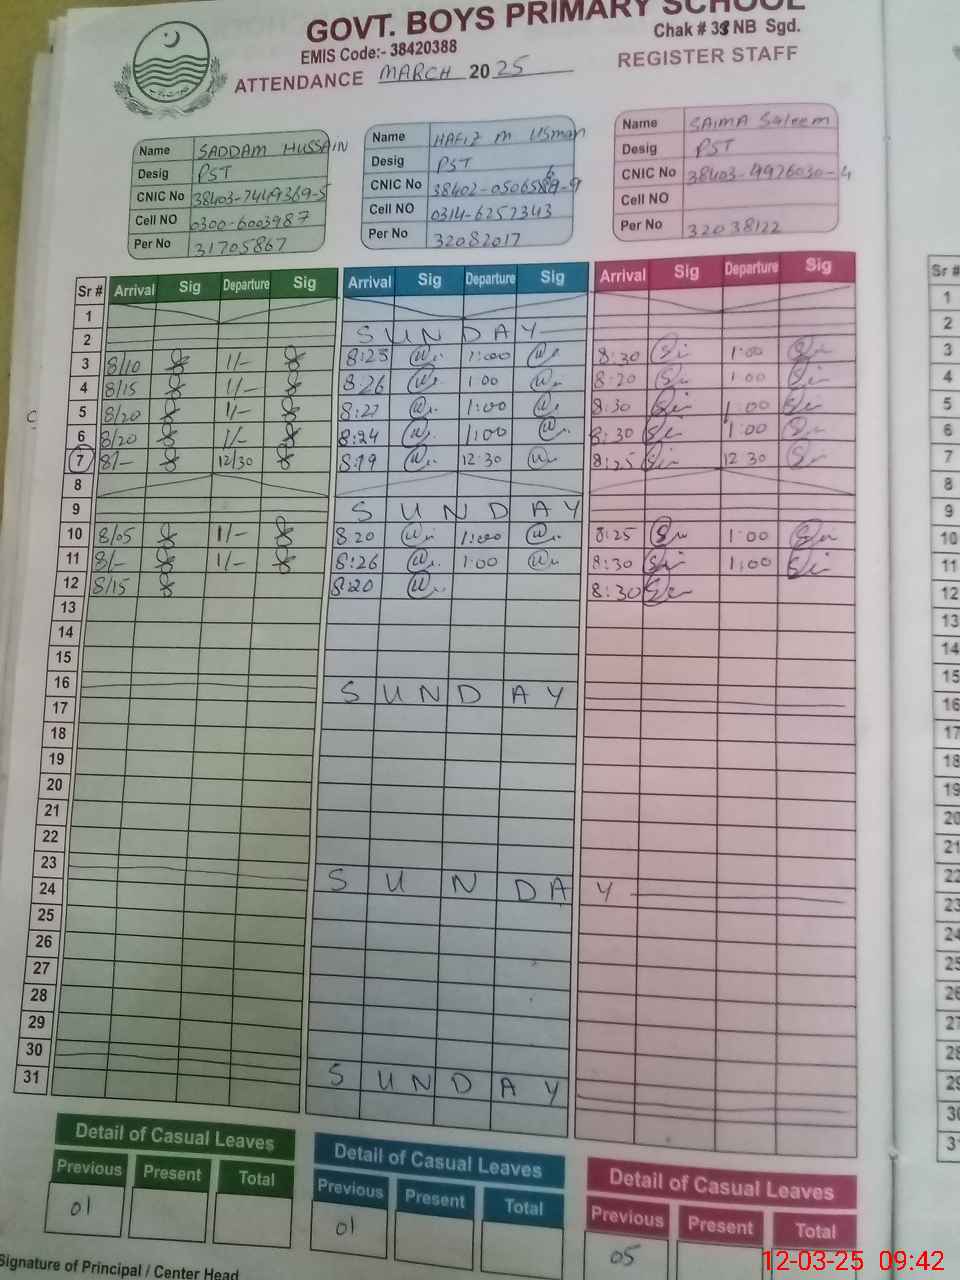 GOVT. BOYS PRIMARY SCHOOL
EMIS Code:- 38420388
Chak # 38 NB Sgd.
ATTENDANCE MARCH 2025
REGISTER STAFF
Name SADDAM HUSSAIN
Desig PST
CNIC No 38403-7449369-5
Cell NO 0300-6003987
Per No 31705867
Name HAFIZ M USman
Desig PST
CNIC No
Cell NO 0314-6252343
Per No 32082017
Name SAIMA Saleem
Desig PST
CNIC No 38403-4926030-4
Cell NO
Per No 32038122
Sr # Arrival Sig Departure Sig Arrival Sig Departure Sig Arrival Sig Departure Sig Sr #
1 1
2 SUNDAY 2
3 8/10 1/- 8:25 1:00 8:30 1:00 3
4 8/15 1/- 8:26 1:00 8:20 1:00 4
5 8/20 1/- 8:27 1:00 8:30 1:00 5
6 8/20 1/- 8:24 1:00 8:30 1:00 6
7 8/- 12/30 8:19 12:30 8:25 12 30 7
8 8
9 SUNDAY 9
10 8/05 1/- 8:20 1:00 8:25 1:00 10
11 8/- 1/- 8:26 1:00 8:30 1:00 11
12 8/15 8:20 8:30 12
13 13
14 14
15 15
16 SUNDAY 16
17 17
18 18
19 19
20 20
21 21
22 22
23 SUNDAY 23
24 24
25 25
26 26
27 27
28 28
29 29
30 SUNDAY 30
31 31
Detail of Casual Leaves
Previous Present Total
01
Detail of Casual Leaves
Previous Present Total
01
Detail of Casual Leaves
Previous Present Total
05
Signature of Principal / Center Head
12-03-25 09:42